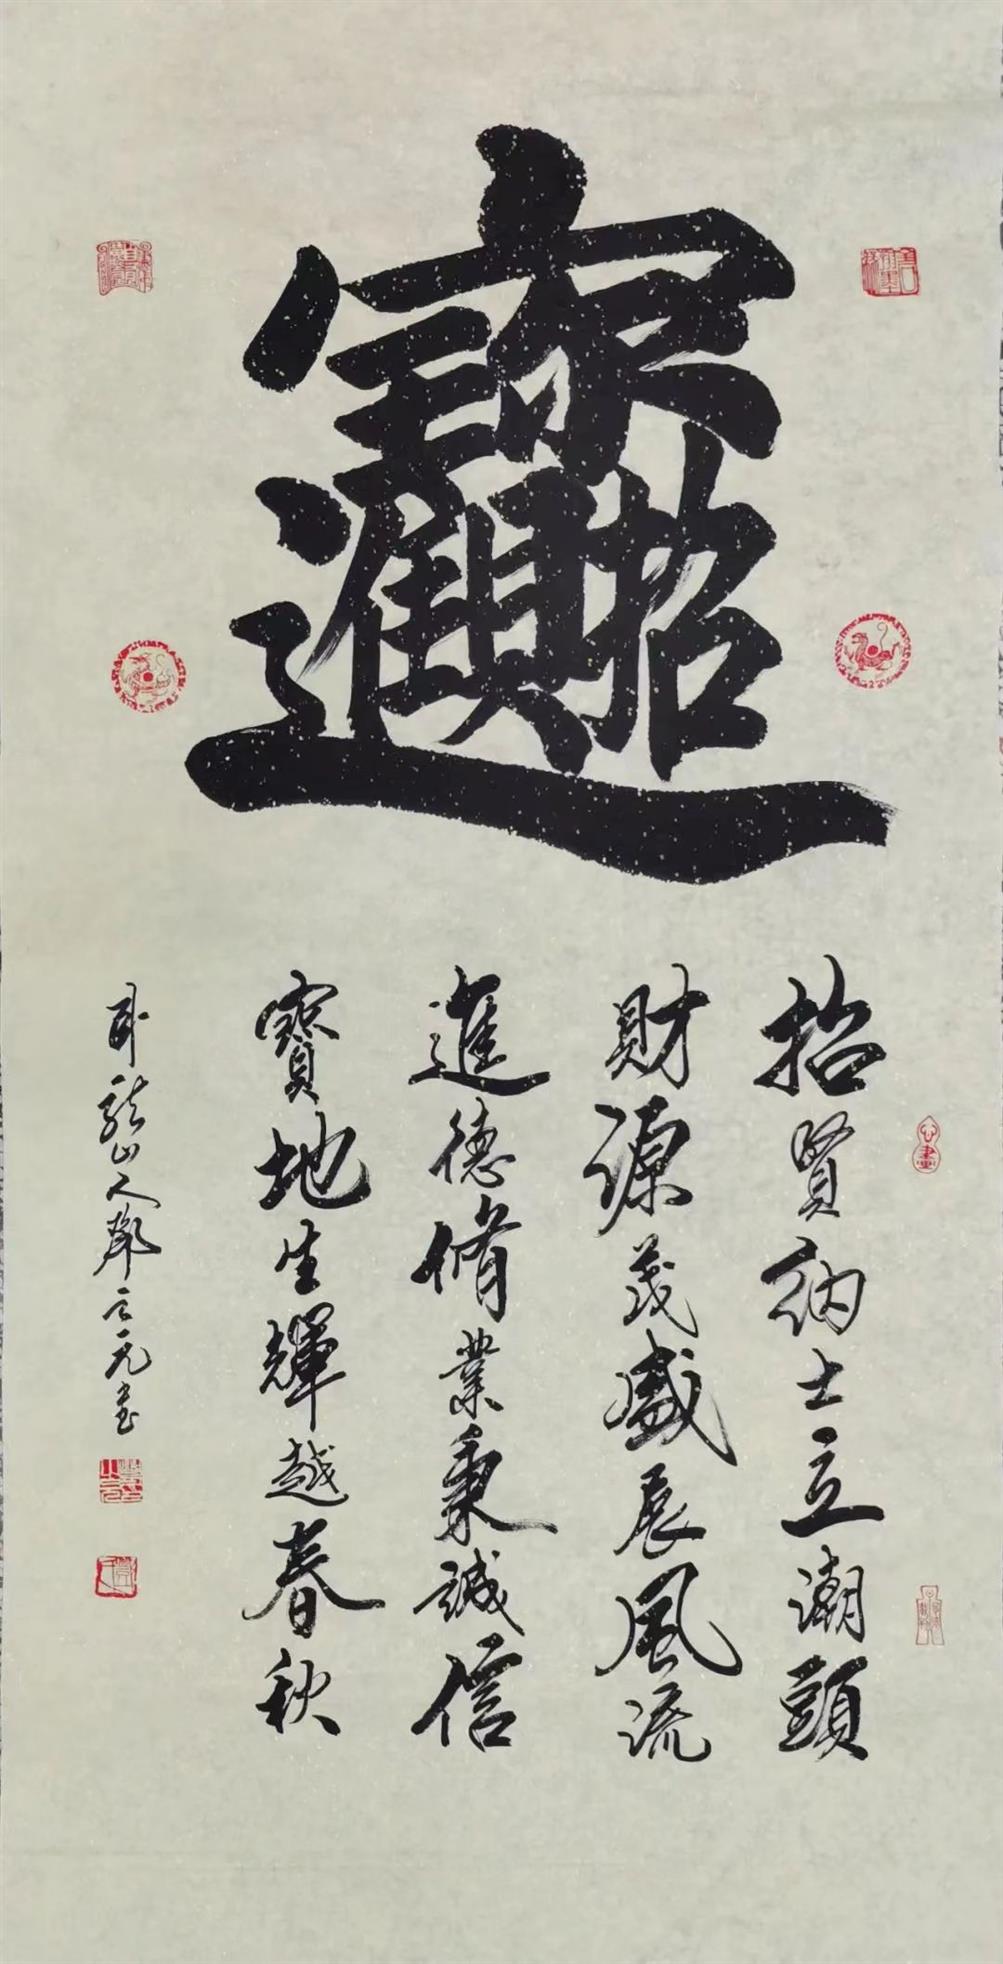 招財進寶
招賢納士立潮頭
財源茂盛展風流
進德脩業秉誠信
寶地生輝越春秋
卧龍山人之元書